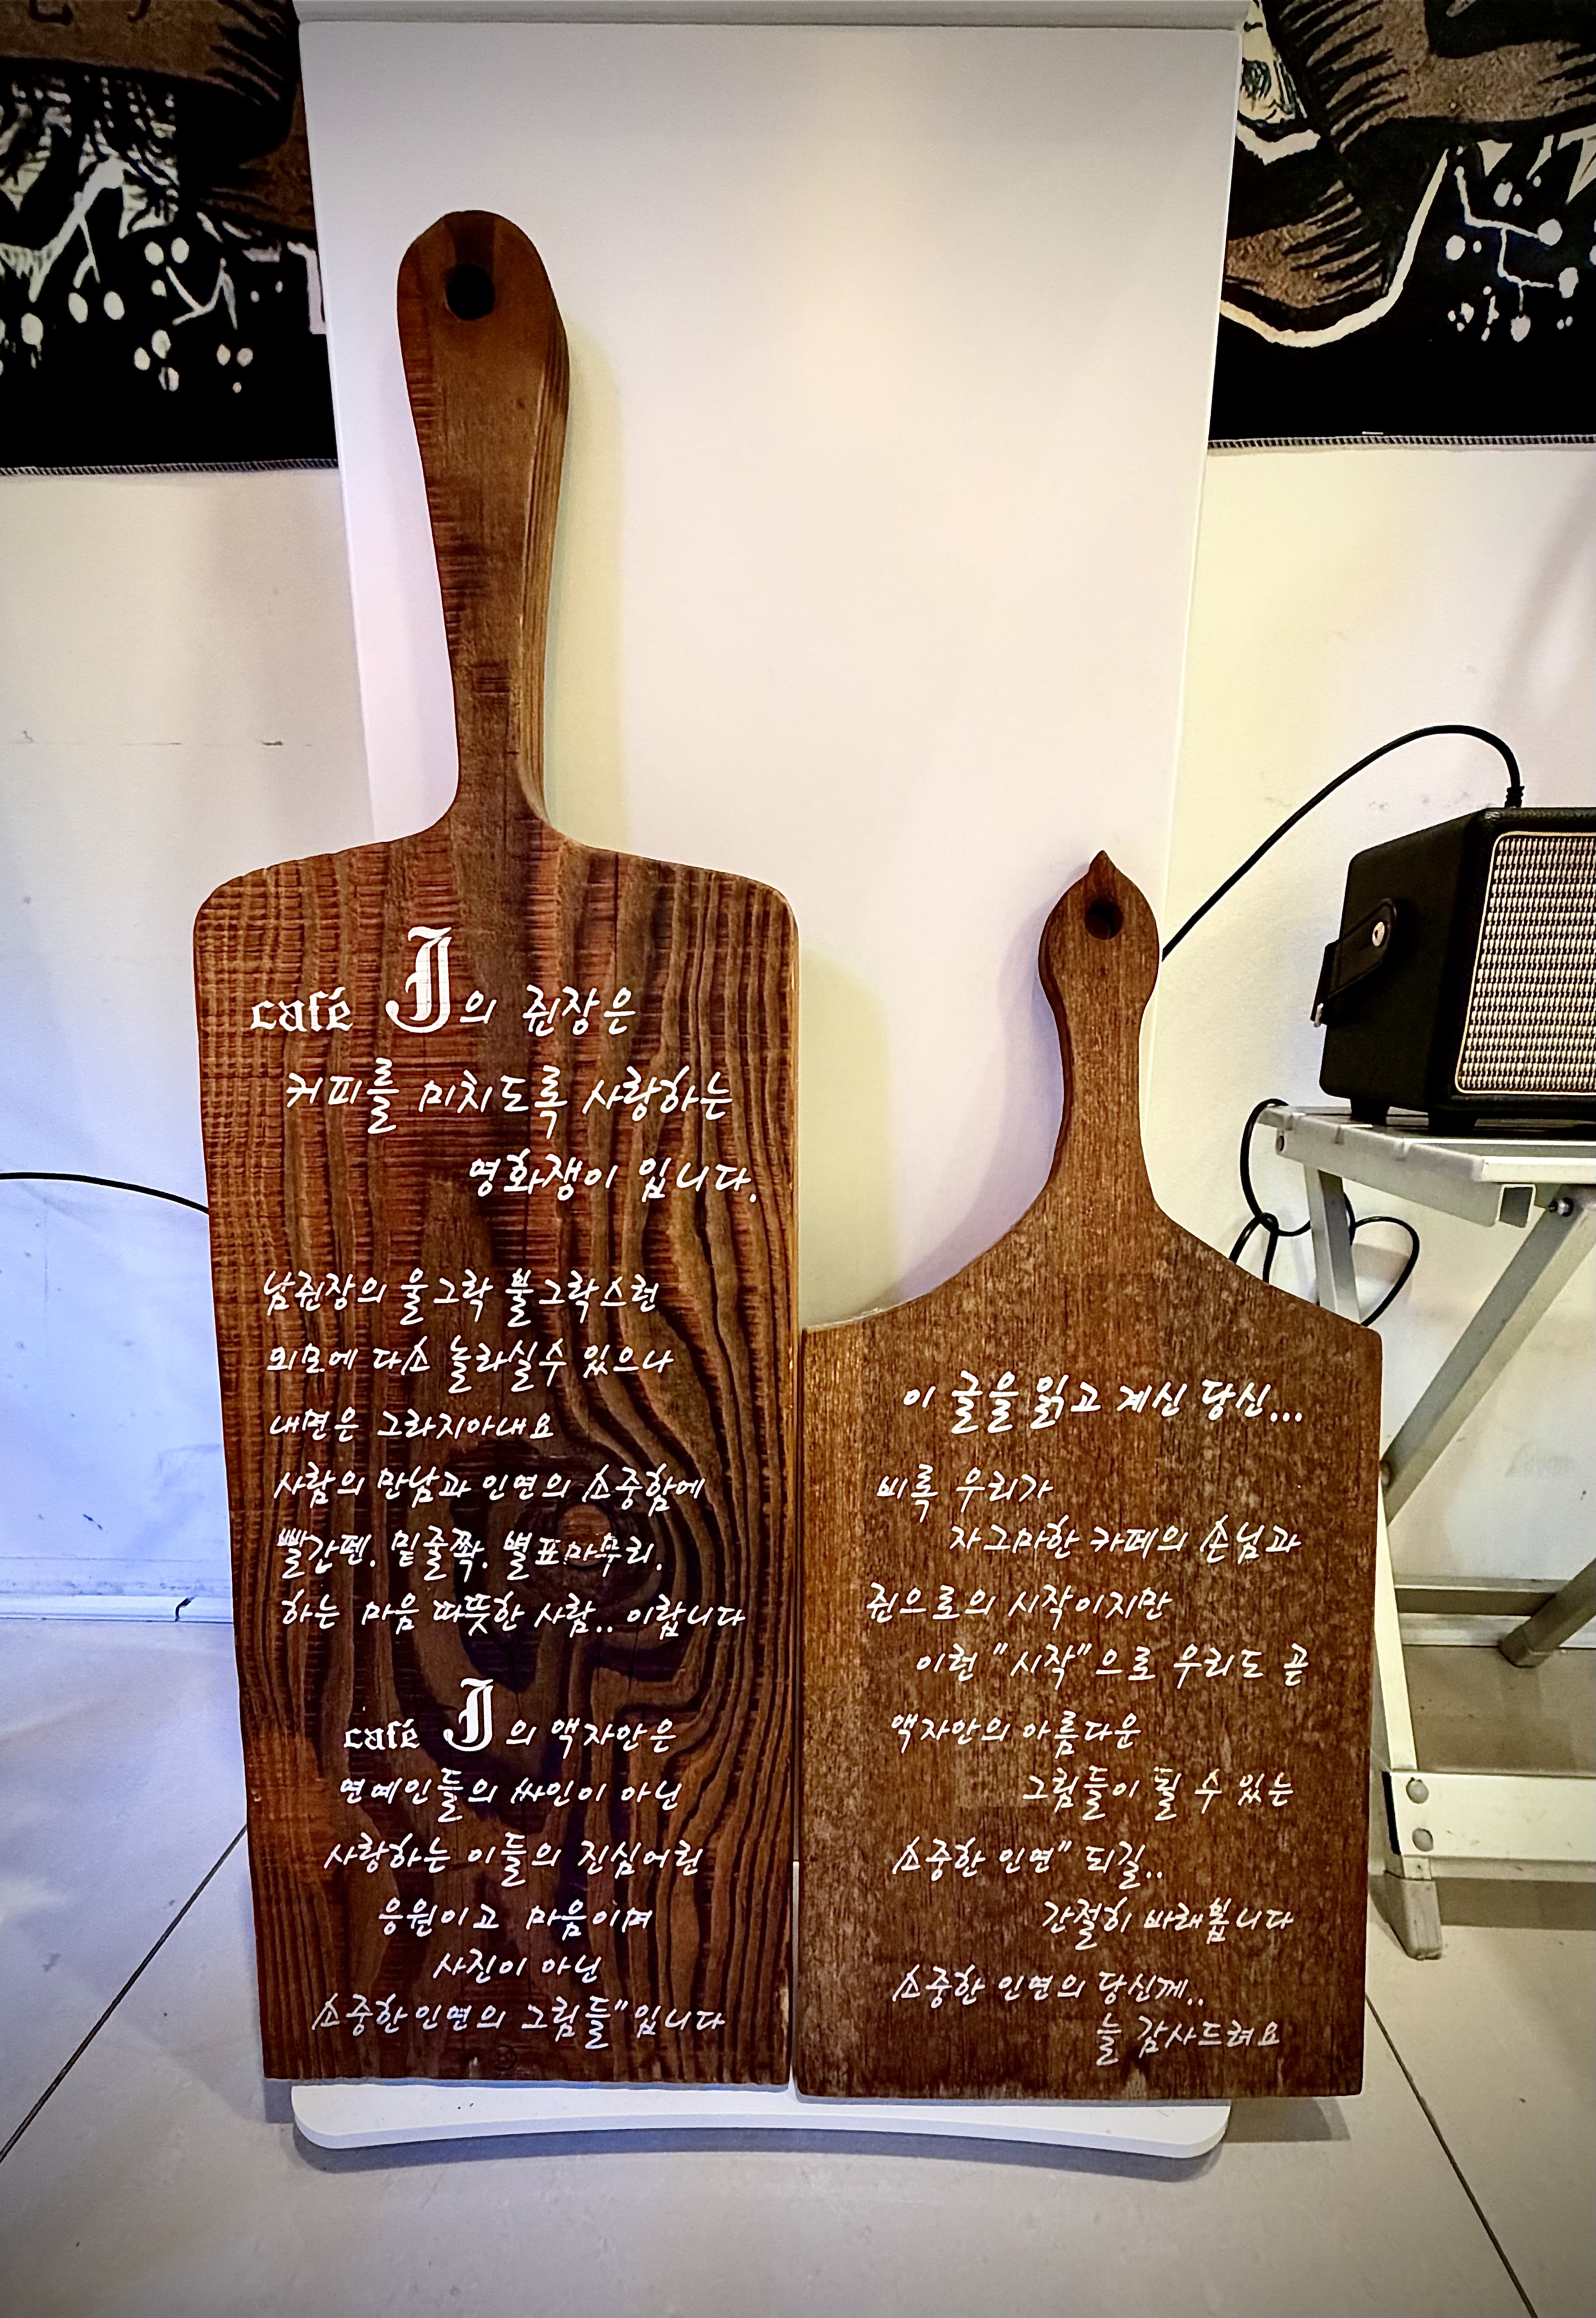 café J의 쥔장은
커피를 미치도록 사랑하는
영화쟁이 입니다.
남쥔장의 울그락 불그락스런
외모에 다소 놀라실수 있으나
내면은 그라지아내요
사람의 만남과 인연의 소중함에
빨간펜. 밑줄쫙. 별표마무리.
하는 마음 따뜻한 사람.. 이랍니다
café J의 액자안은
연예인들의 싸인이 아닌
사랑하는 이들의 진심어린
응원이고 마음이며
사진이 아닌
소중한 인연의 그림들"입니다
이 글을 읽고 계신 당신...
비록 우리가
자그마한 카페의 손님과
쥔으로의 시작이지만
이런 "시작"으로 우리도 곧
액자안의 아름다운
그림들이 될 수 있는
소중한 인연" 되길..
간절히 바래봅니다
소중한 인연의 당신께..
늘 감사드려요